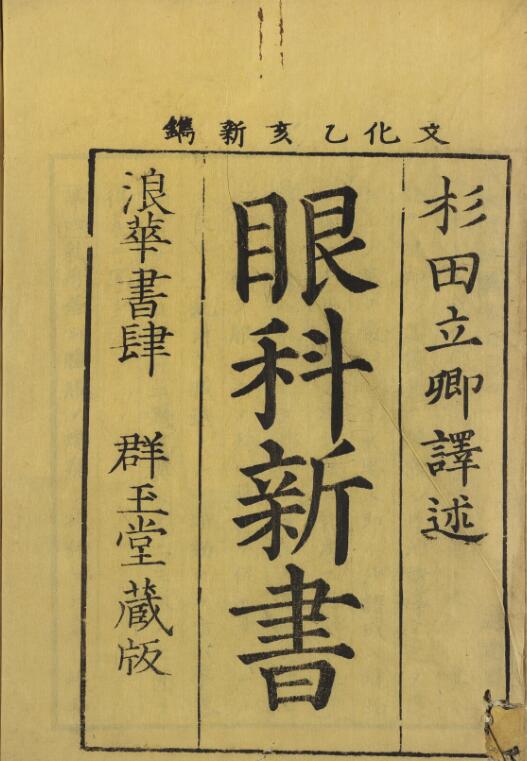 文化乙亥新鐫
杉田立卿譯述
眼科新書
浪華書肆 群玉堂蔵版